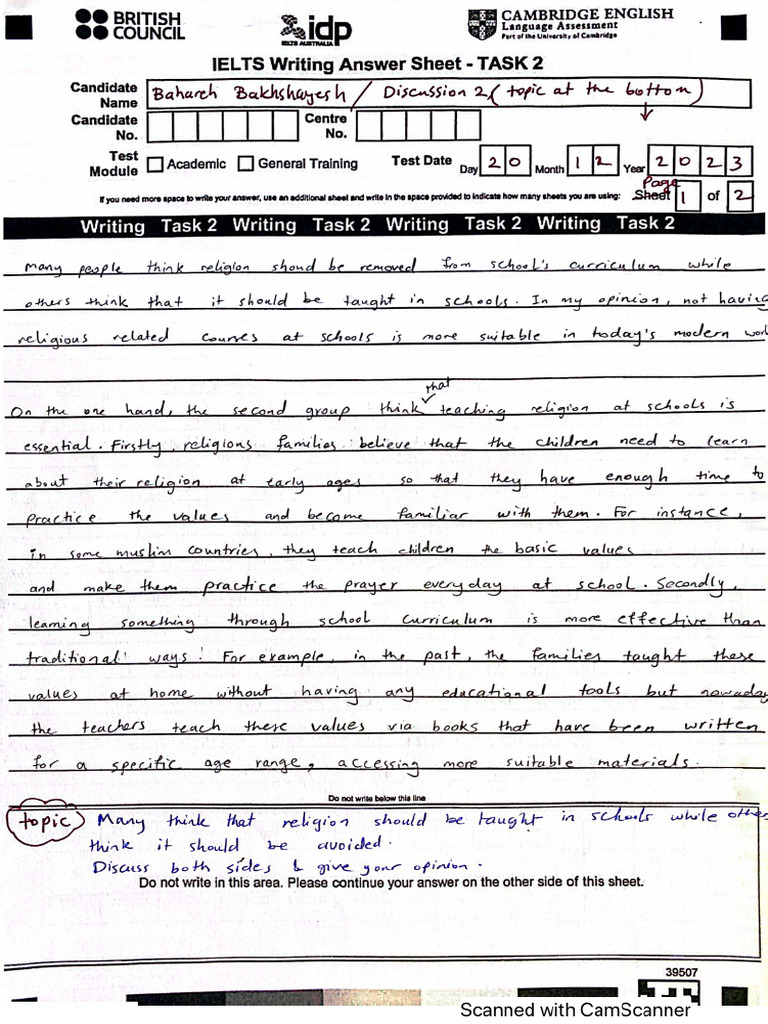 BRITISH COUNCIL
idp
IELTS AUSTRALIA
CAMBRIDGE ENGLISH
Language Assessment
Part of the University of Cambridge
IELTS Writing Answer Sheet - TASK 2
Candidate Name Bahareh Bakhshayesh / Discussion 2 (topic at the bottom)
Candidate No. Centre No.
Test Module Academic General Training Test Date Day 20 Month 12 Year 2023
If you need more space to write your answer, use an additional sheet and write in the space provided to indicate how many sheets you are using: Sheet Page 1 of 2
Writing Task 2 Writing Task 2 Writing Task 2 Writing Task 2
Many people think religion should be removed from school's curriculum while
others think that it should be taught in schools. In my opinion, not having
religious related courses at schools is more suitable in today's modern worl
On the one hand, the second group think that teaching religion at schools is
essential. Firstly, religions families believe that the children need to learn
about their religion at early ages so that they have enough time to
practice the values and become familiar with them. For instance,
in some muslim countries, they teach children the basic values
and make them practice the prayer everyday at school. Secondly,
learning something through school curriculum is more effective than
traditional ways. For example, in the past, the families taught these
values at home without having any educational tools but nowaday
the teachers teach these values via books that have been written
for a specific age range, accessing more suitable materials.
Do not write below this line
topic Many think that religion should be taught in schools while other
think it should be avoided.
Discuss both sides & give your opinion.
Do not write in this area. Please continue your answer on the other side of this sheet.
39507
Scanned with CamScanner